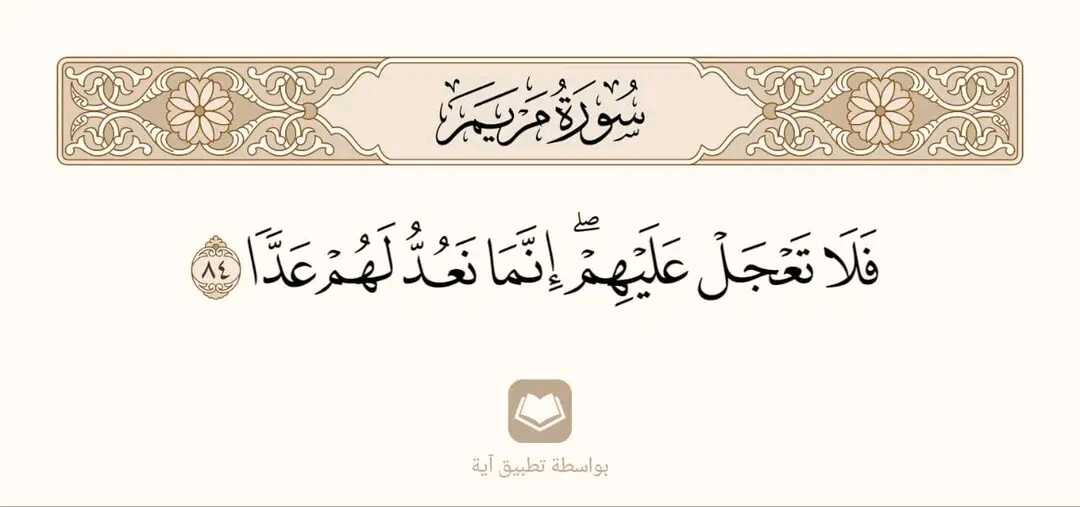 سُورَةُ مَرْيَمَ
فَلَا تَعْجَلْ عَلَيْهِمْ ۖ إِنَّمَا نَعُدُّ لَهُمْ عَدًّا ٨٤
بواسطة تطبيق آية